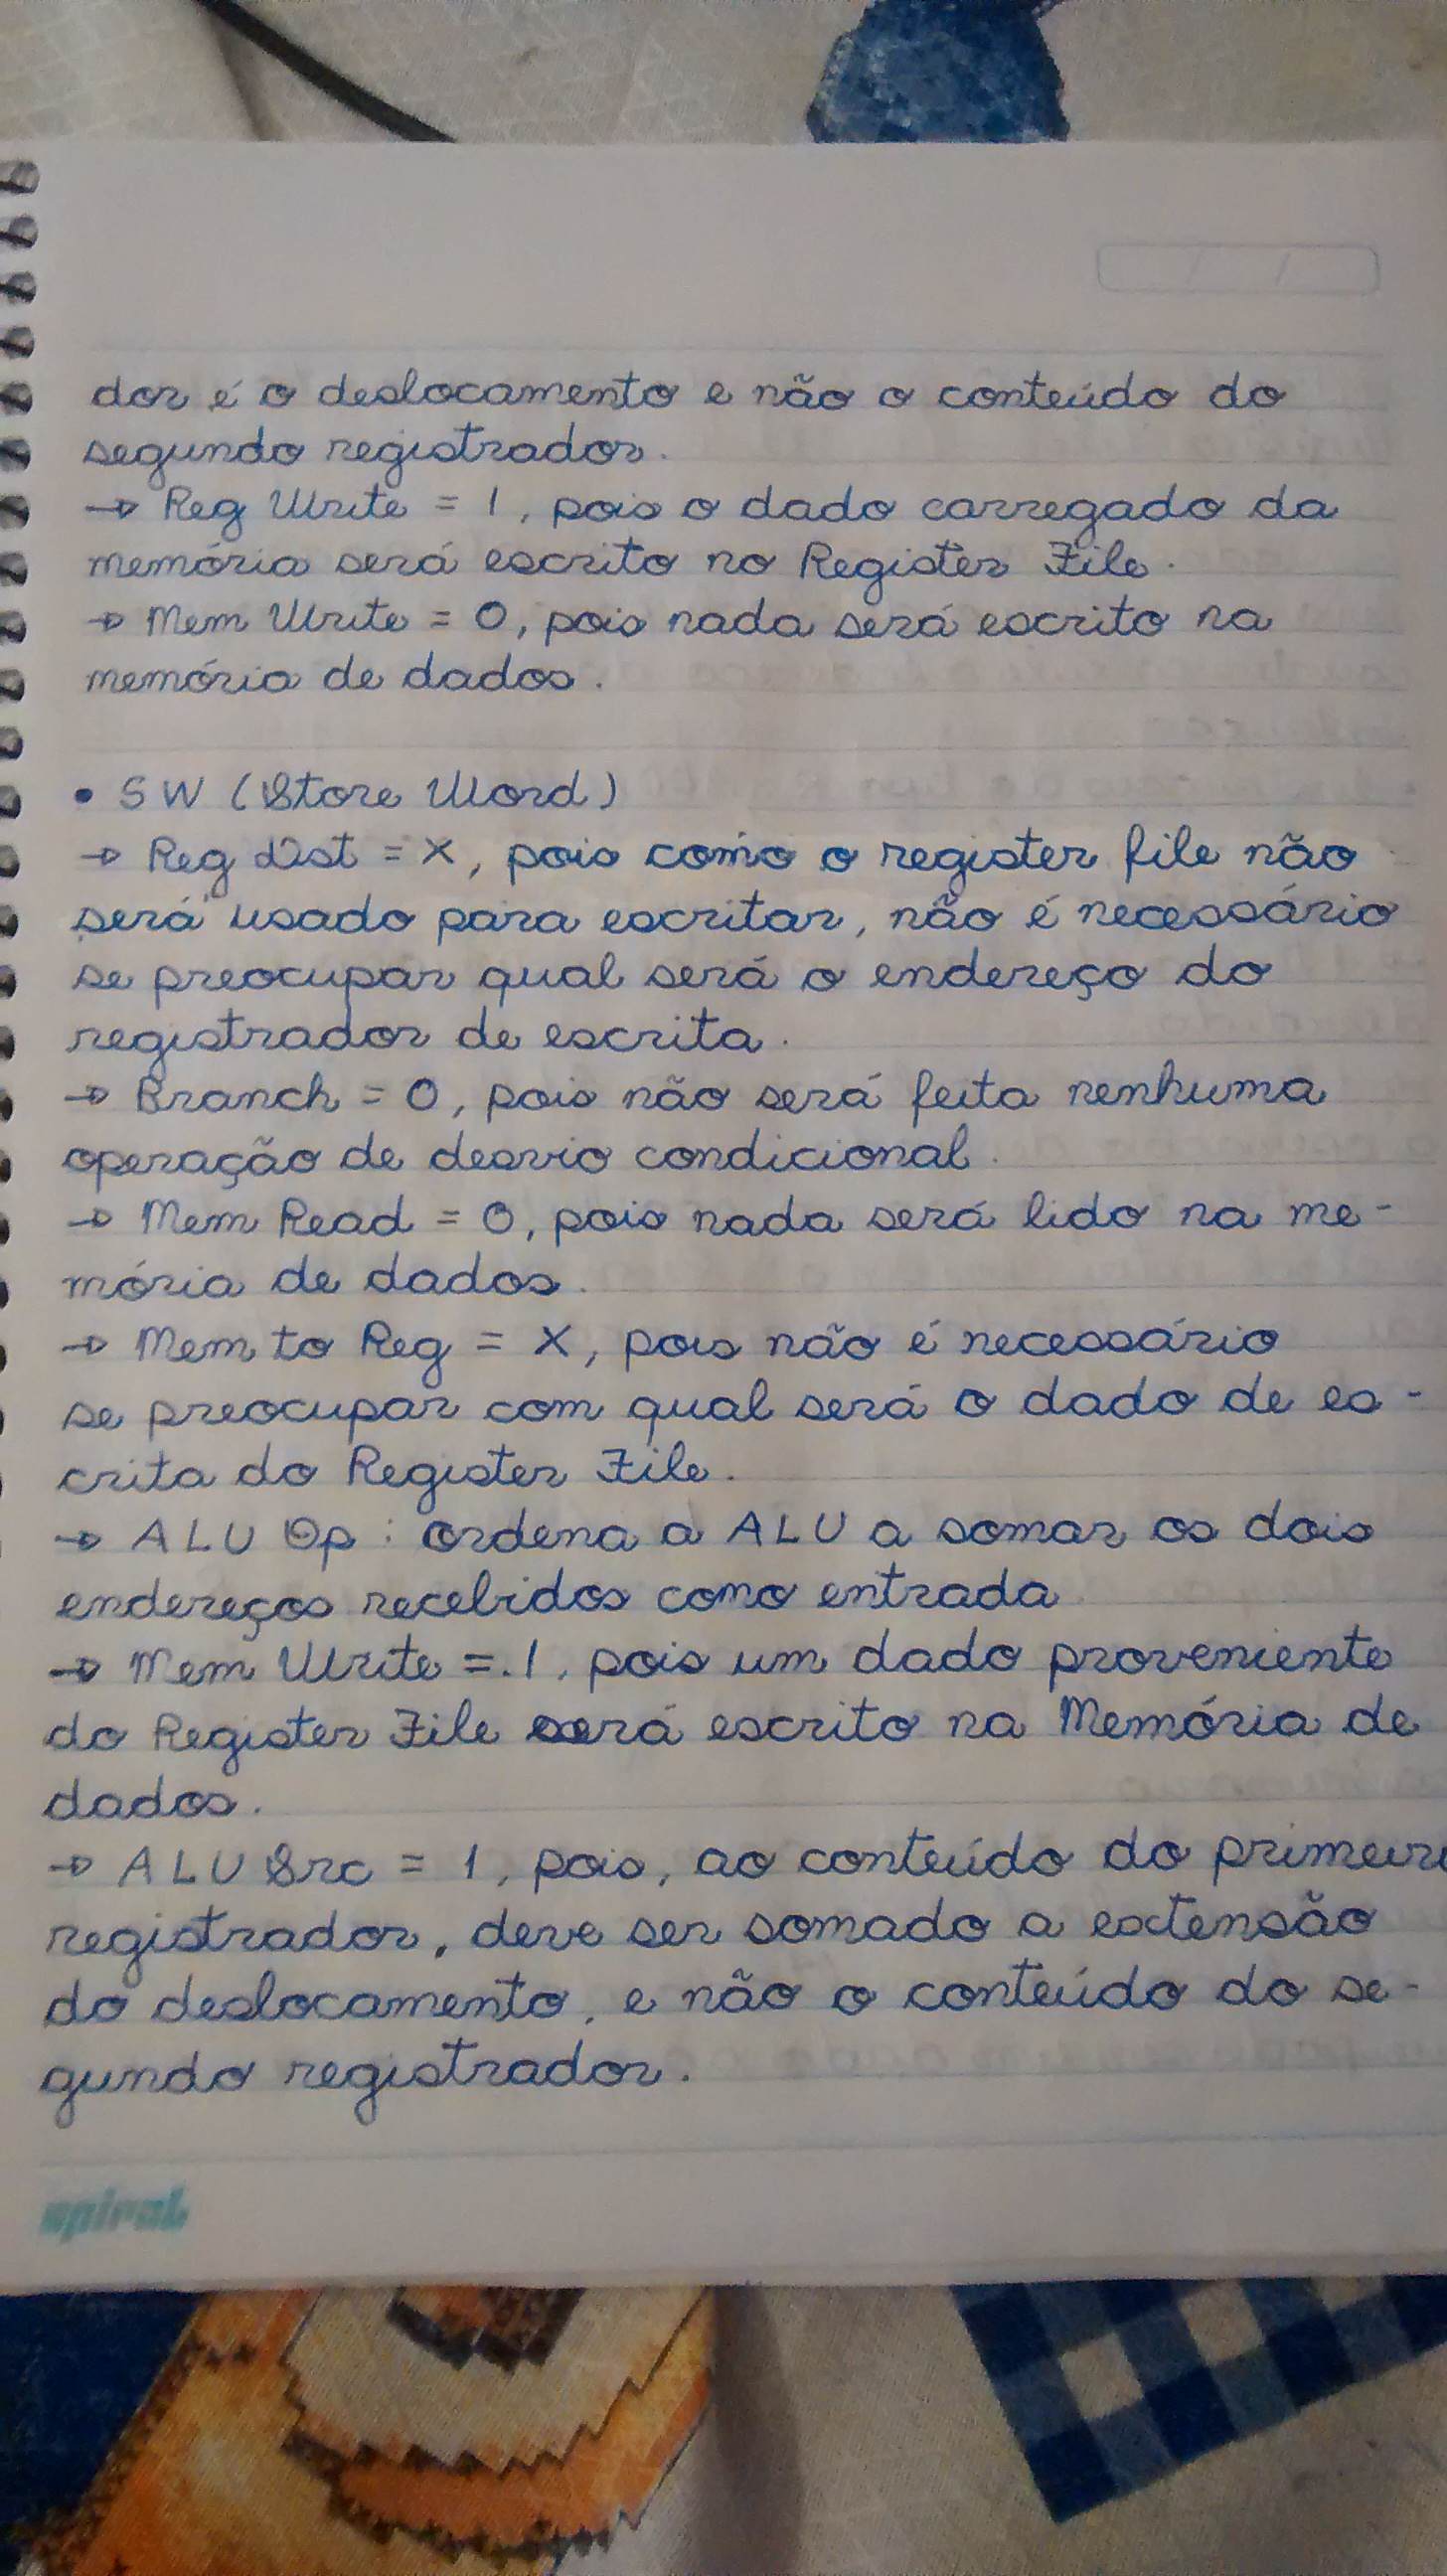 dor é o deslocamento e não o conteúdo do
segundo registrador.
→ Reg Write = 1, pois o dado carregado da
memória será escrito no Register File.
→ Mem Write = 0, pois nada será escrito na
memória de dados.
• SW (Store Word)
→ Reg Dst = X, pois como o register file não
será usado para escritar, não é necessário
se preocupar qual será o endereço do
registrador de escrita.
→ Branch = 0, pois não será feita nenhuma
operação de desvio condicional.
→ Mem Read = 0, pois nada será lido na me-
mória de dados.
→ Mem to Reg = X, pois não é necessário
se preocupar com qual será o dado de es-
crita do Register File.
→ ALU Op : ordena a ALU a somar os dois
endereços recebidos como entrada
→ Mem Write = 1, pois um dado proveniente
do Register File será escrito na Memória de
dados.
→ ALU Src = 1, pois, ao conteúdo do primeiro
registrador, deve ser somado a extensão
do deslocamento, e não o conteúdo do se-
gundo registrador.
spiral